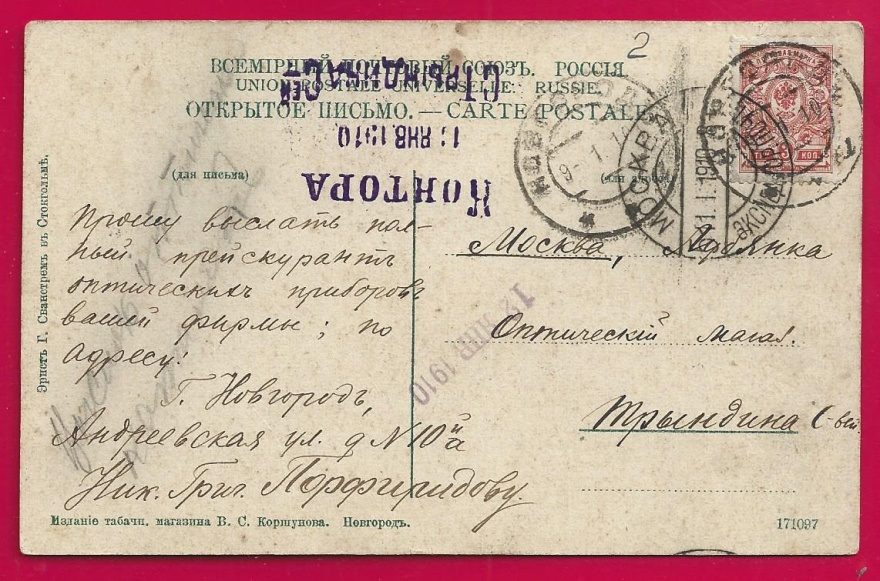 2
ВСЕМІРНЫЙ ПОЧТОВЫЙ СОЮЗЪ. РОССІЯ.
UNION POSTALE UNIVERSELLE. RUSSIE.
ОТКРЫТОЕ ПИСЬМО. — CARTE POSTALE
(для письма)
КОНТОРА
13 ЯНВ 1910
МОСКВА
11.1.1910
ЭКСПЕДИЦ
НОВГОРОДЪ
КОП.
Прошу выслать пол-
ный прейскурантъ
оптическихъ приборовъ
вашей фирмы; по
адресу:
Г. Новгородъ,
Андреевская ул. д N 10й
Ник. Григ. Порфиридову.
Москва, Лубянка
Оптическій магаз.
Трындина С-вей
12 ЯНВ 1910
Эрнстъ Г. Сванстремъ въ Стокгольмѣ.
Изданіе табачн. магазина В. С. Коршунова. Новгородъ.
171097